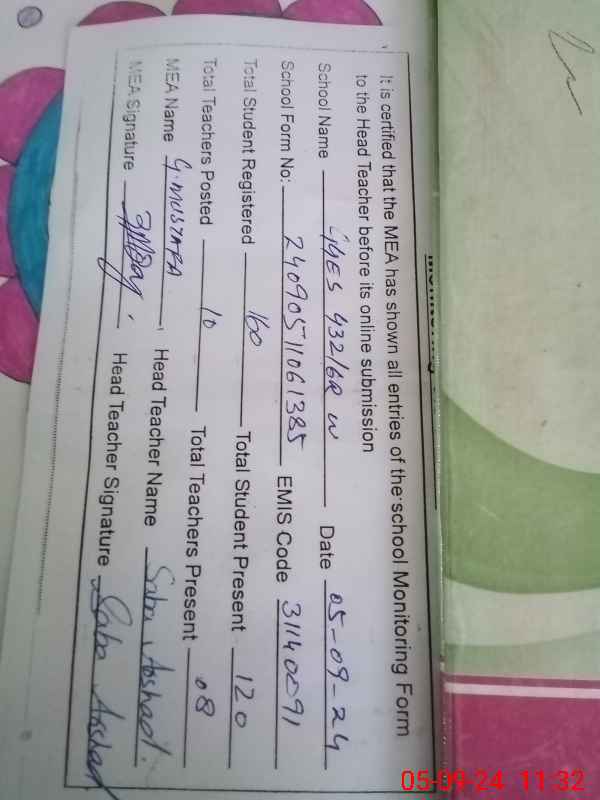 It is certified that the MEA has shown all entries of the school Monitoring Form
to the Head Teacher before its online submission
School Name GGES 432/6R W Date 05-09-24
School Form No: 24090511061385 EMIS Code 31140091
Total Student Registered 160 Total Student Present 120
Total Teachers Posted 10 Total Teachers Present 08
MEA Name G.MUSTAFA Head Teacher Name Saba Arshad.
MEA Signature Head Teacher Signature Saba Arshad
05-09-24 11:32